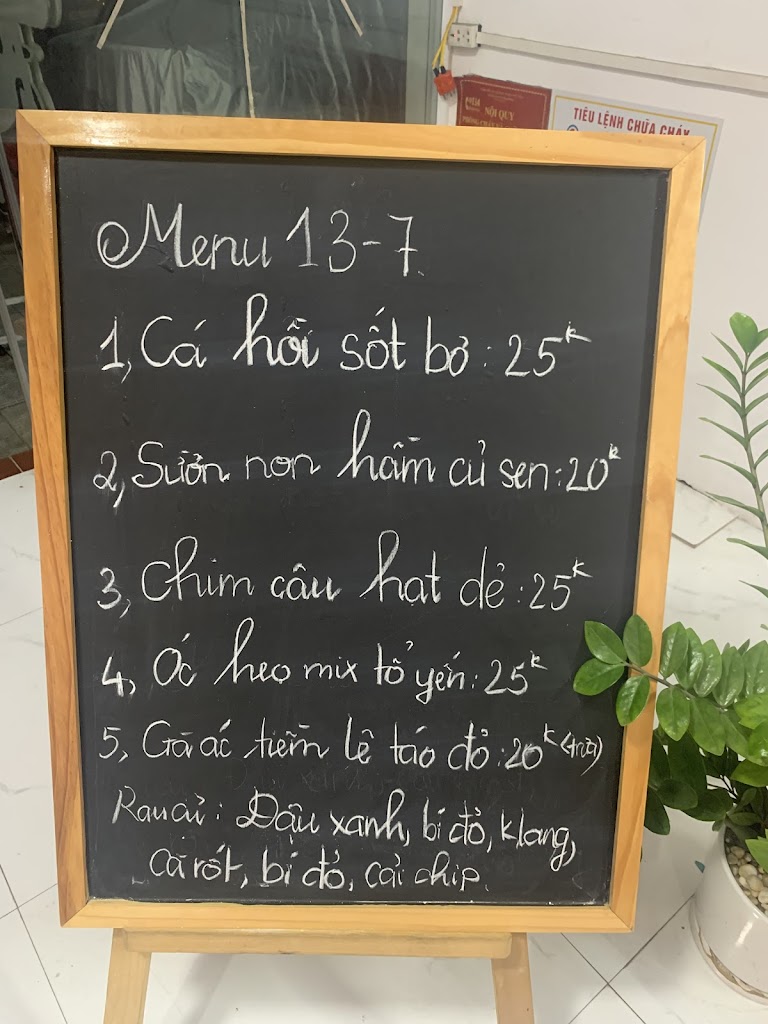 NỘI QUY
PHÒNG CHÁY
TIÊU LỆNH CHỮA CHÁY
Menu 13-7
1, Cá hồi sốt bơ : 25k
2, Sườn non hầm củ sen : 20k
3, Chim câu hạt dẻ : 25k
4, Óc heo mix tổ yến : 25k
5, Gà ác tiềm lê táo đỏ : 20k (trưa)
Rau củ : Đậu xanh, bí đỏ, k lang,
Cà rốt, bí đỏ, cải chip.